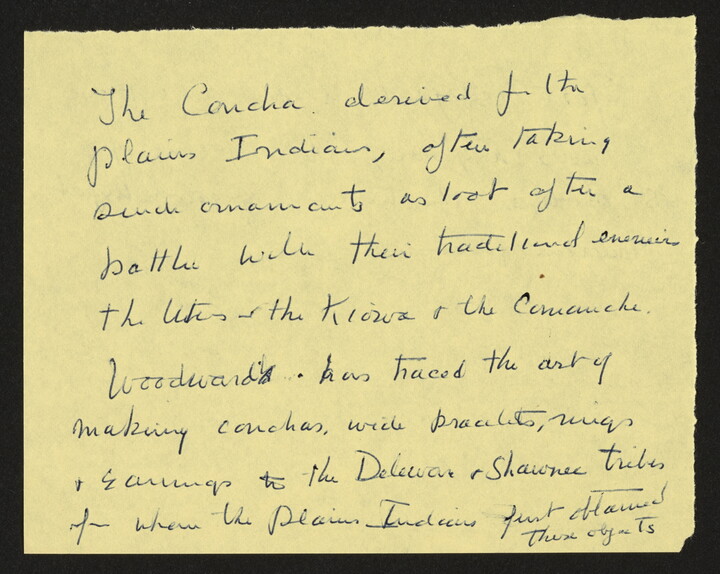 The Concha. derived f the
plains Indians, often taking
such ornaments as loot after a
battle with their traditional enemies
the Utes & the Kiowa & the Comanche.
Woodward's. has traced the art of
making conchas, wide bracelets, rings
& earrings to the Delewar & Shawnee tribes
f whom the Plains Indians first obtained
these objects